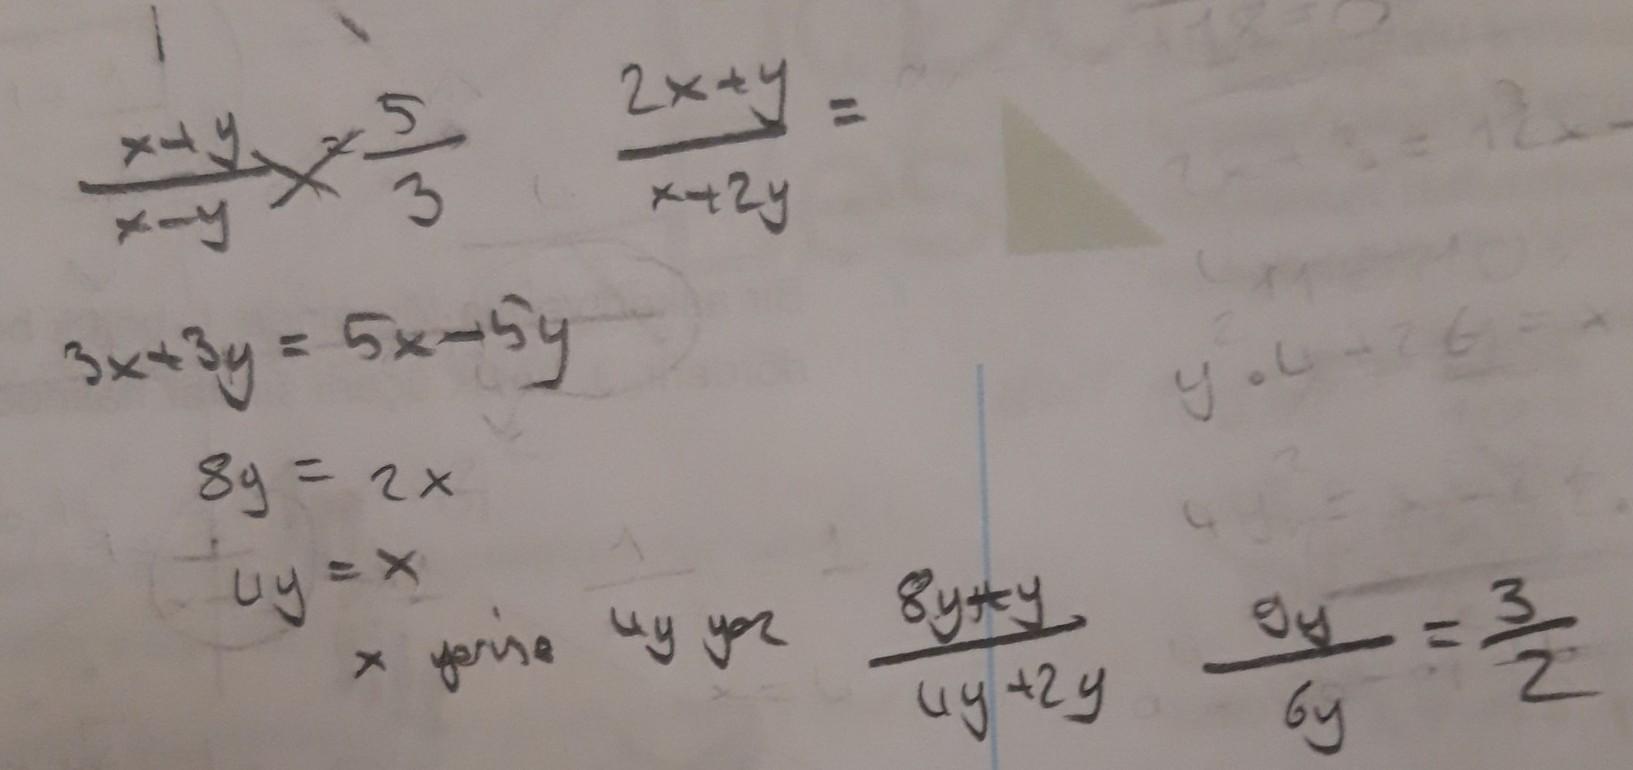 x+y/x-y = 5/3    2x+y/x+2y =
3x+3y = 5x-5y
8y = 2x
4y = x
x yerine 4y yaz    8y+y/4y+2y    9y/6y = 3/2